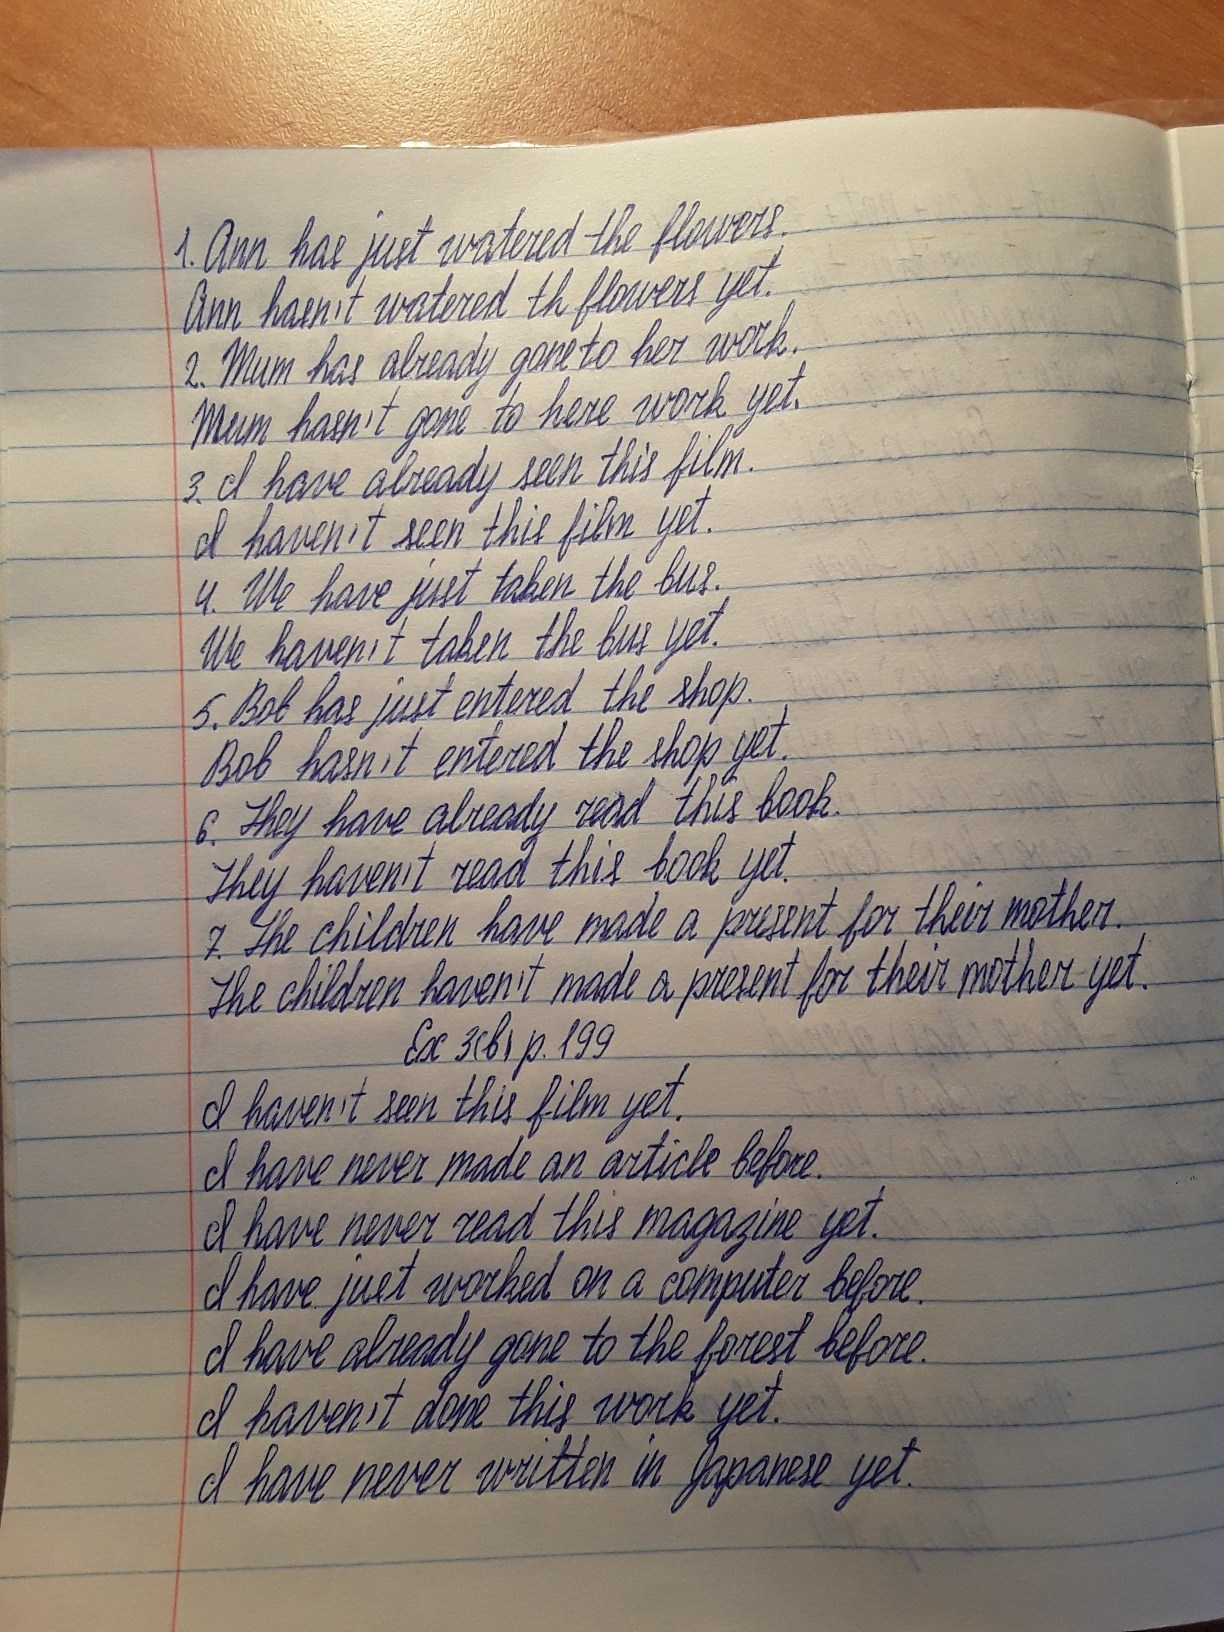 1. Ann has just watered the flowers.
Ann hasn't watered th flowers yet.
2. Mum has already gone to her work.
Mum hasn't gone to here work yet.
3. I have already seen this film.
I haven't seen this film yet.
4. We have just taken the bus.
We haven't taken the bus yet.
5. Bob has just entered the shop.
Bob hasn't entered the shop yet.
6. They have already read this book.
They haven't read this book yet.
7. The children have made a present for their mother.
The children haven't made a present for their mother yet.
Ex 3(b) p. 199
I haven't seen this film yet.
I have never made an article before.
I have never read this magazine yet.
I have just worked on a computer before.
I have already gone to the forest before.
I haven't done this work yet.
I have never written in Japanese yet.